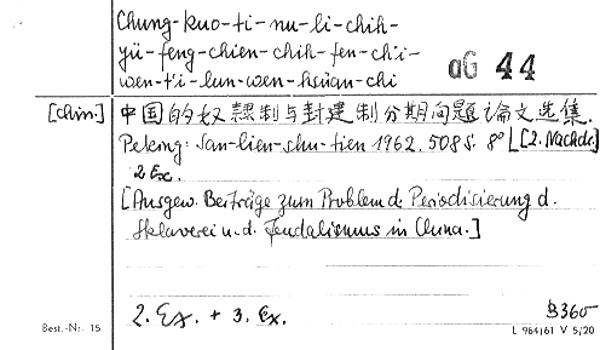 Chung-kuo-ti-nu-li-chih-
yü-feng-chien-chih-fen-ch'i-
wen-t'i-lun-wen-hsüan-chi
aG 44
[Chin.] 中国的奴隸制与封建制分期问題论文选集.
Peking: San-lien-shu-tien 1962. 508 S. 8° [2. Nachdr.]
2 Ex.
[Ausgew. Beiträge zum Problem d. Periodisierung d.
Sklaverei u. d. Feudalismus in China.]
2. Ex. + 3. Ex.
B360
Best.-Nr. 15
L 964/61 V 5/20